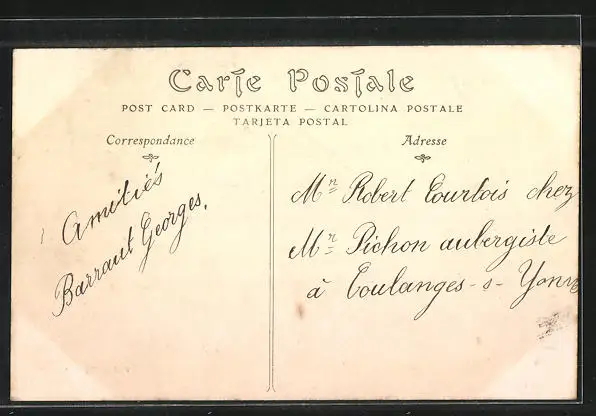 Carte Postale
POST CARD — POSTKARTE — CARTOLINA POSTALE
TARJETA POSTAL
Correspondance
Amitiés
Barraut Georges.
Adresse
Mr Robert Courtois chez
Mr Pichon aubergiste
à Coulanges-s-Yonne